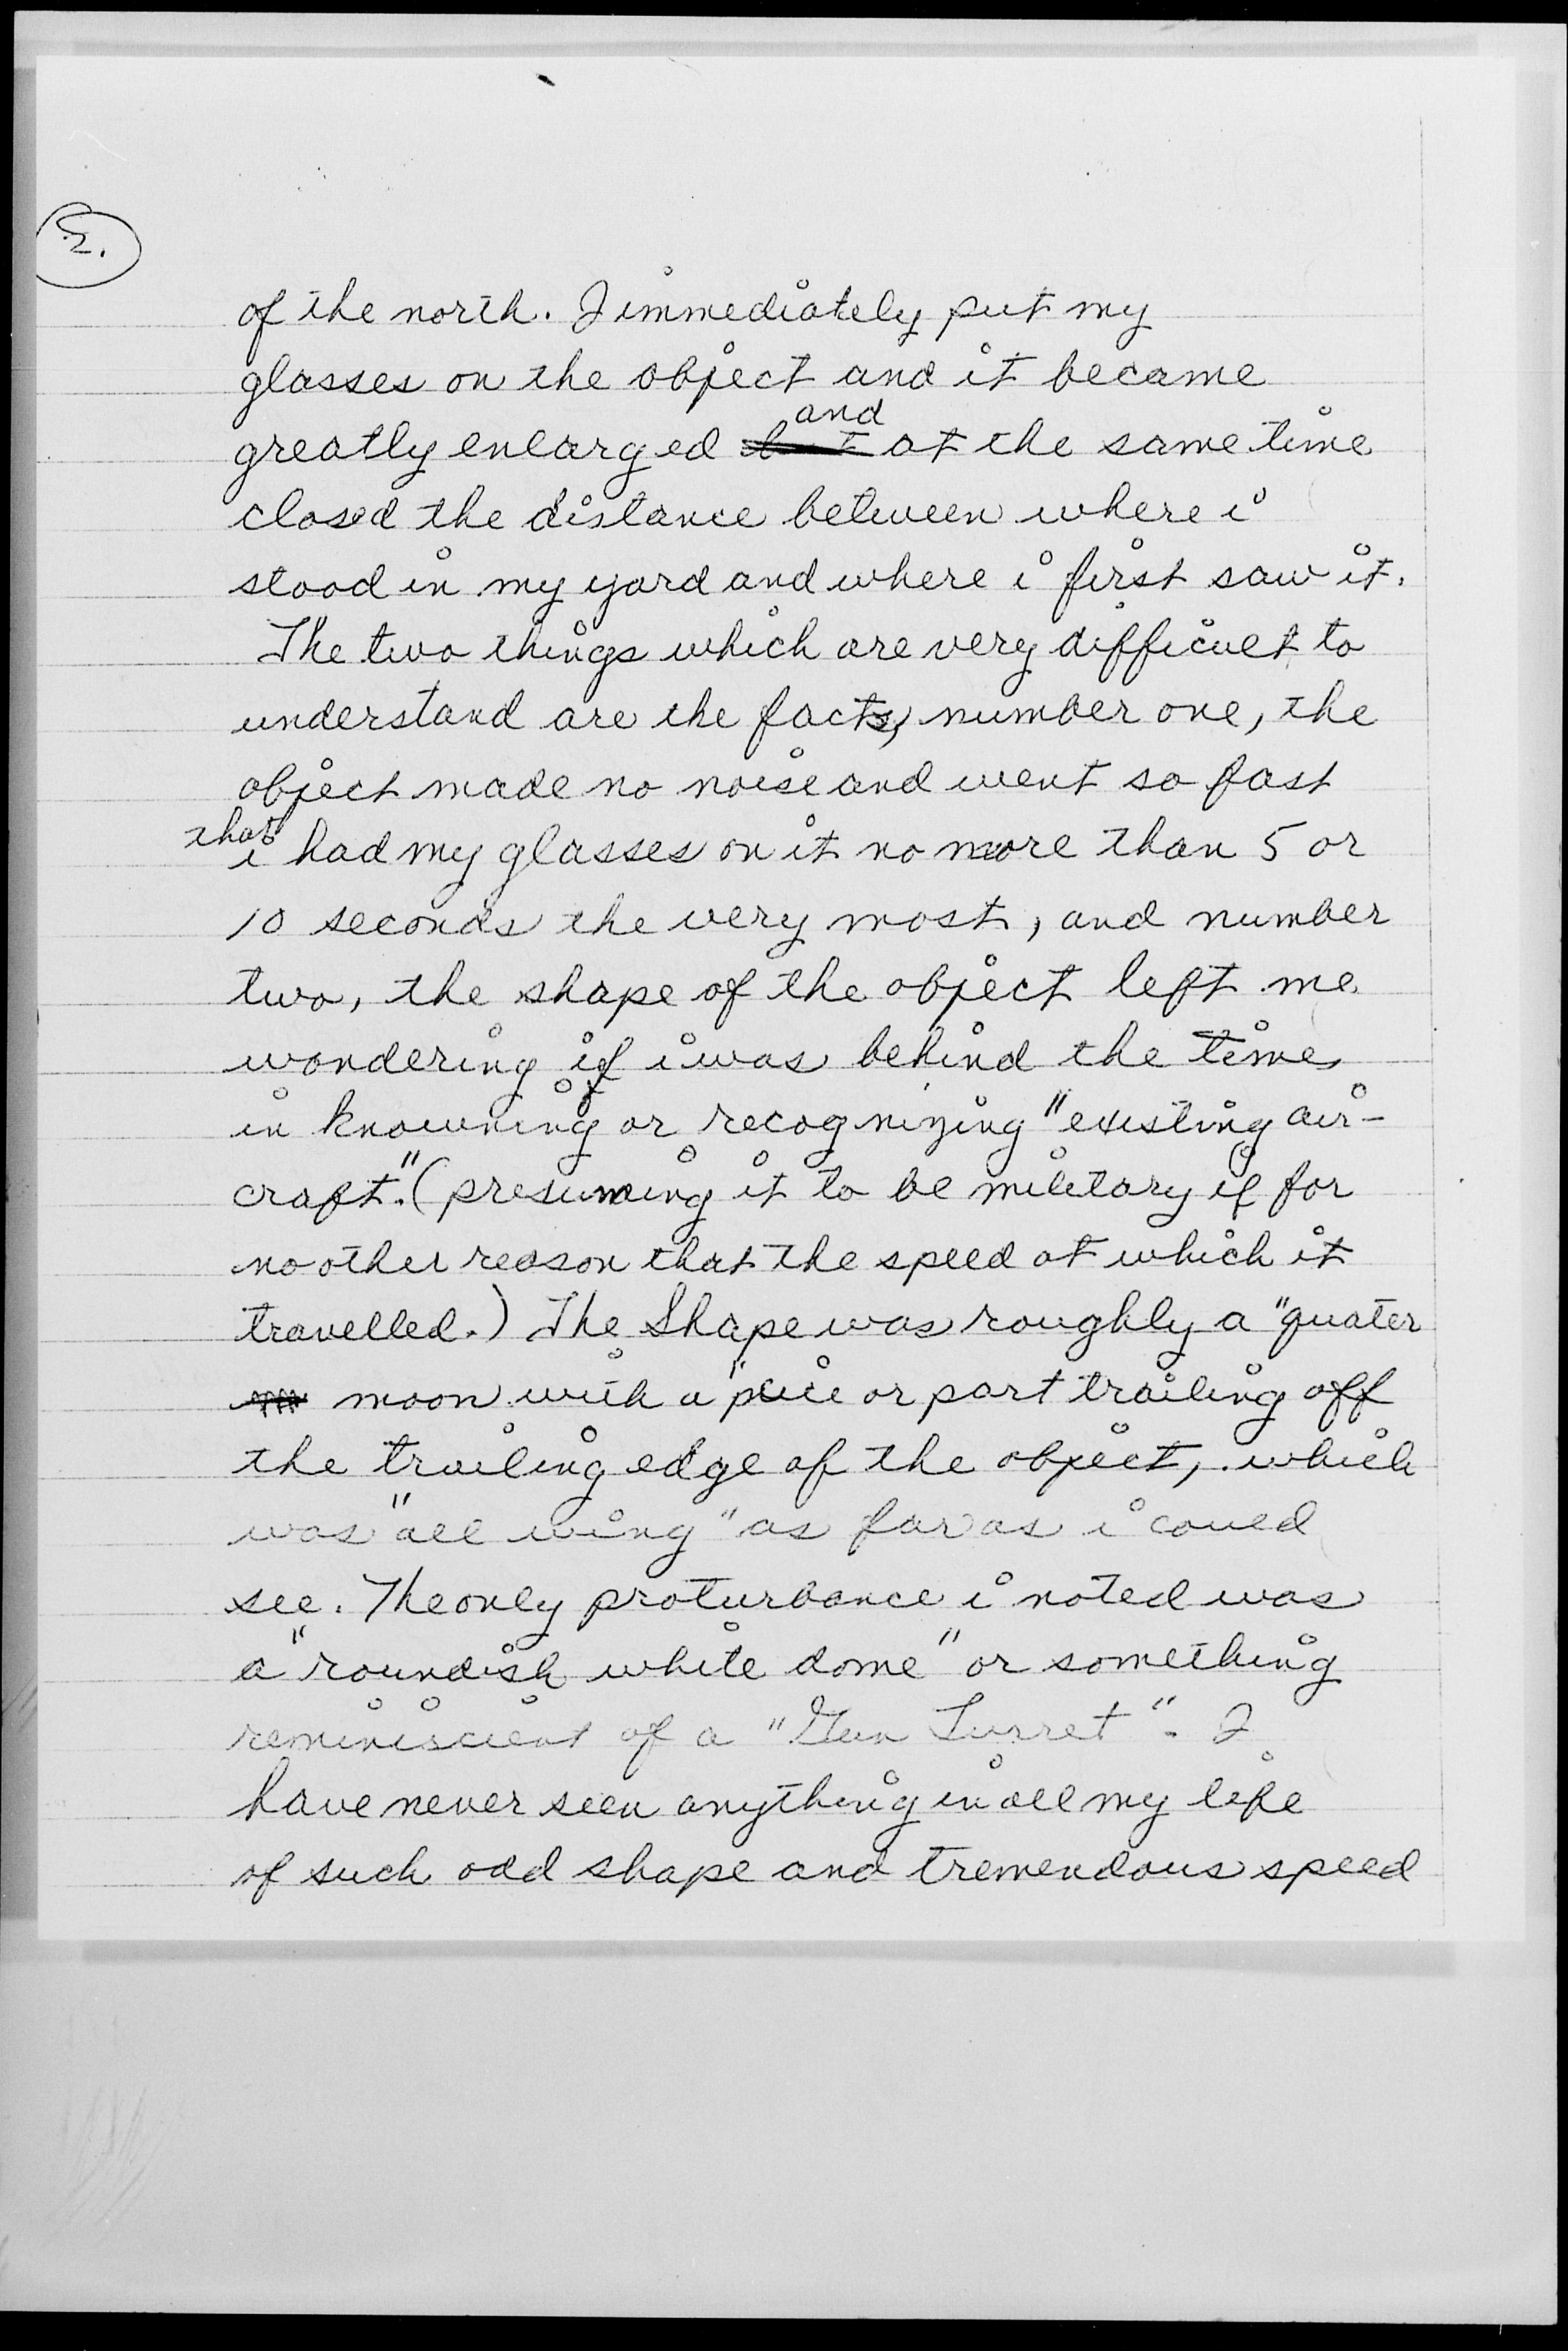 2.
of the north. I immediately put my
glasses on the object and it became
greatly enlarged but and at the same time
closed the distance between where i
stood in my yard and where i first saw it.
The two things which are very difficult to
understand are the facts, number one, the
object made no noise and went so fast
that i had my glasses on it no more than 5 or
10 seconds the very most, and number
two, the shape of the object left me
wondering if i was behind the times
in knowning or recognizing "existing air-
craft." (presuming it to be military if for
no other reason that the speed at which it
travelled.) The Shape was roughly a "quater
moon with a "peice or part trailing off
the trailing edge of the object, which
was "all wing" as far as i could
see. The only proturbance i noted was
a "roundish white dome" or something
reminiscient of a "Gun Turret". I
have never seen anything in all my life
of such odd shape and tremendous speed